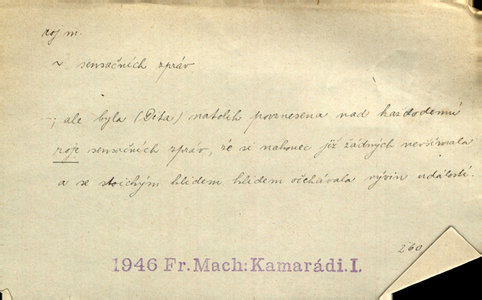 roj m.
~ sensačních zpráv
–; ale byla (Péta) natolik povznesena nad každodenní
roje sensačních zpráv, že si nakonec již žádných nevšímala
a se stoickým klidem klidem očekávala vývin událostí.
260
1946 Fr.Mach:Kamarádi.I.